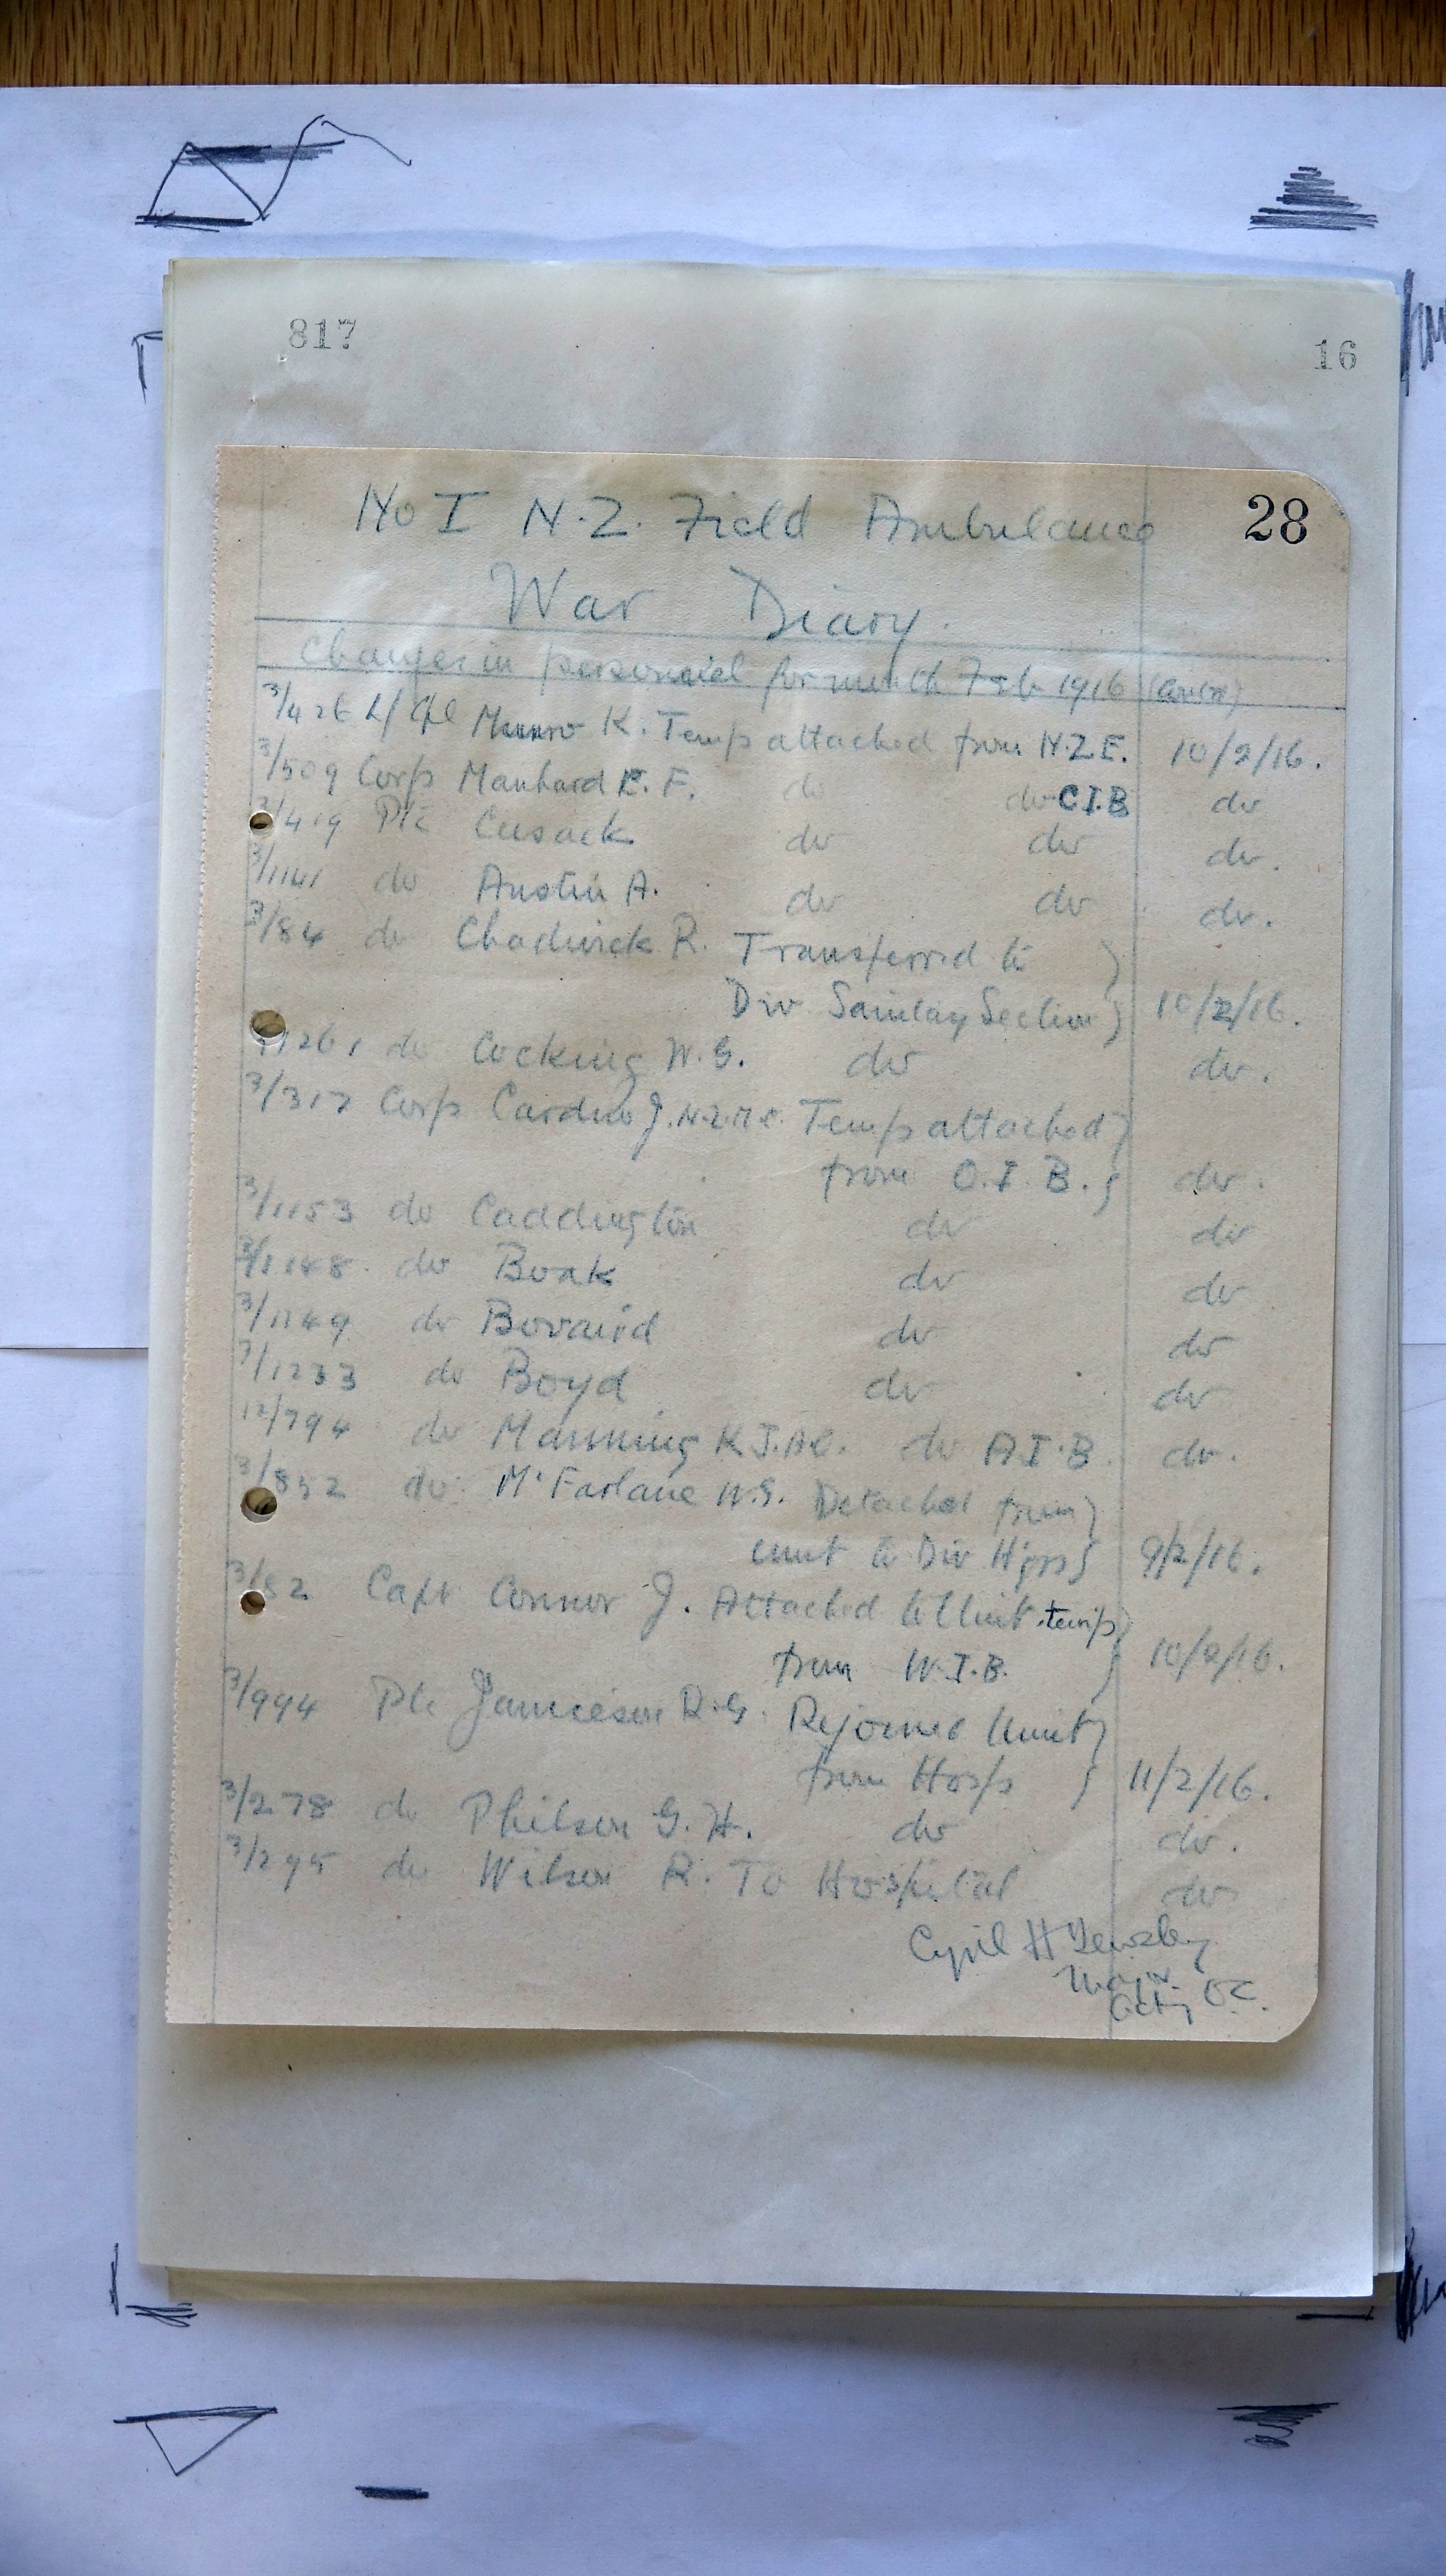 817
16
28
No I N.Z. Field Ambulance
War Diary.
Changes in personnel for month Feb 1916 (contd)
3/426 L/Cpl Munro K. Temp attached from N.Z.E. 10/2/16.
3/509 Corp Manhard E. F. do do C.I.B do
3/419 Pte Cusack do do do.
3/1141 do Austin A. do do do.
3/84 do Chadwick R. Transferred to
Div Sanitary Section 10/2/16.
do Cocking W. G. do do.
3/317 Corp J. N.Z.M.C. Temp attached
from O.I.B. do.
3/1153 do Caddington do do
3/1148. do Boak do do
3/1149 do Bovaird do do
3/1233 do Boyd do do
12/794 do Manning K do A.I.B. do.
3/852 do McFarlane W.G. Detached from
unit to Div Hqrs 9/2/16.
3/82 Capt Connor J. Attached to Unit temp
from W.I.B. 10/2/16.
3/994 Pte Jamieson R.G. Rejoined Unit
from Hosp 11/2/16.
3/278 do Philson G. H. do do.
3/295 do Wilson R. To Hospital do
Cyril H Tewsley
Major
Actg O.C.